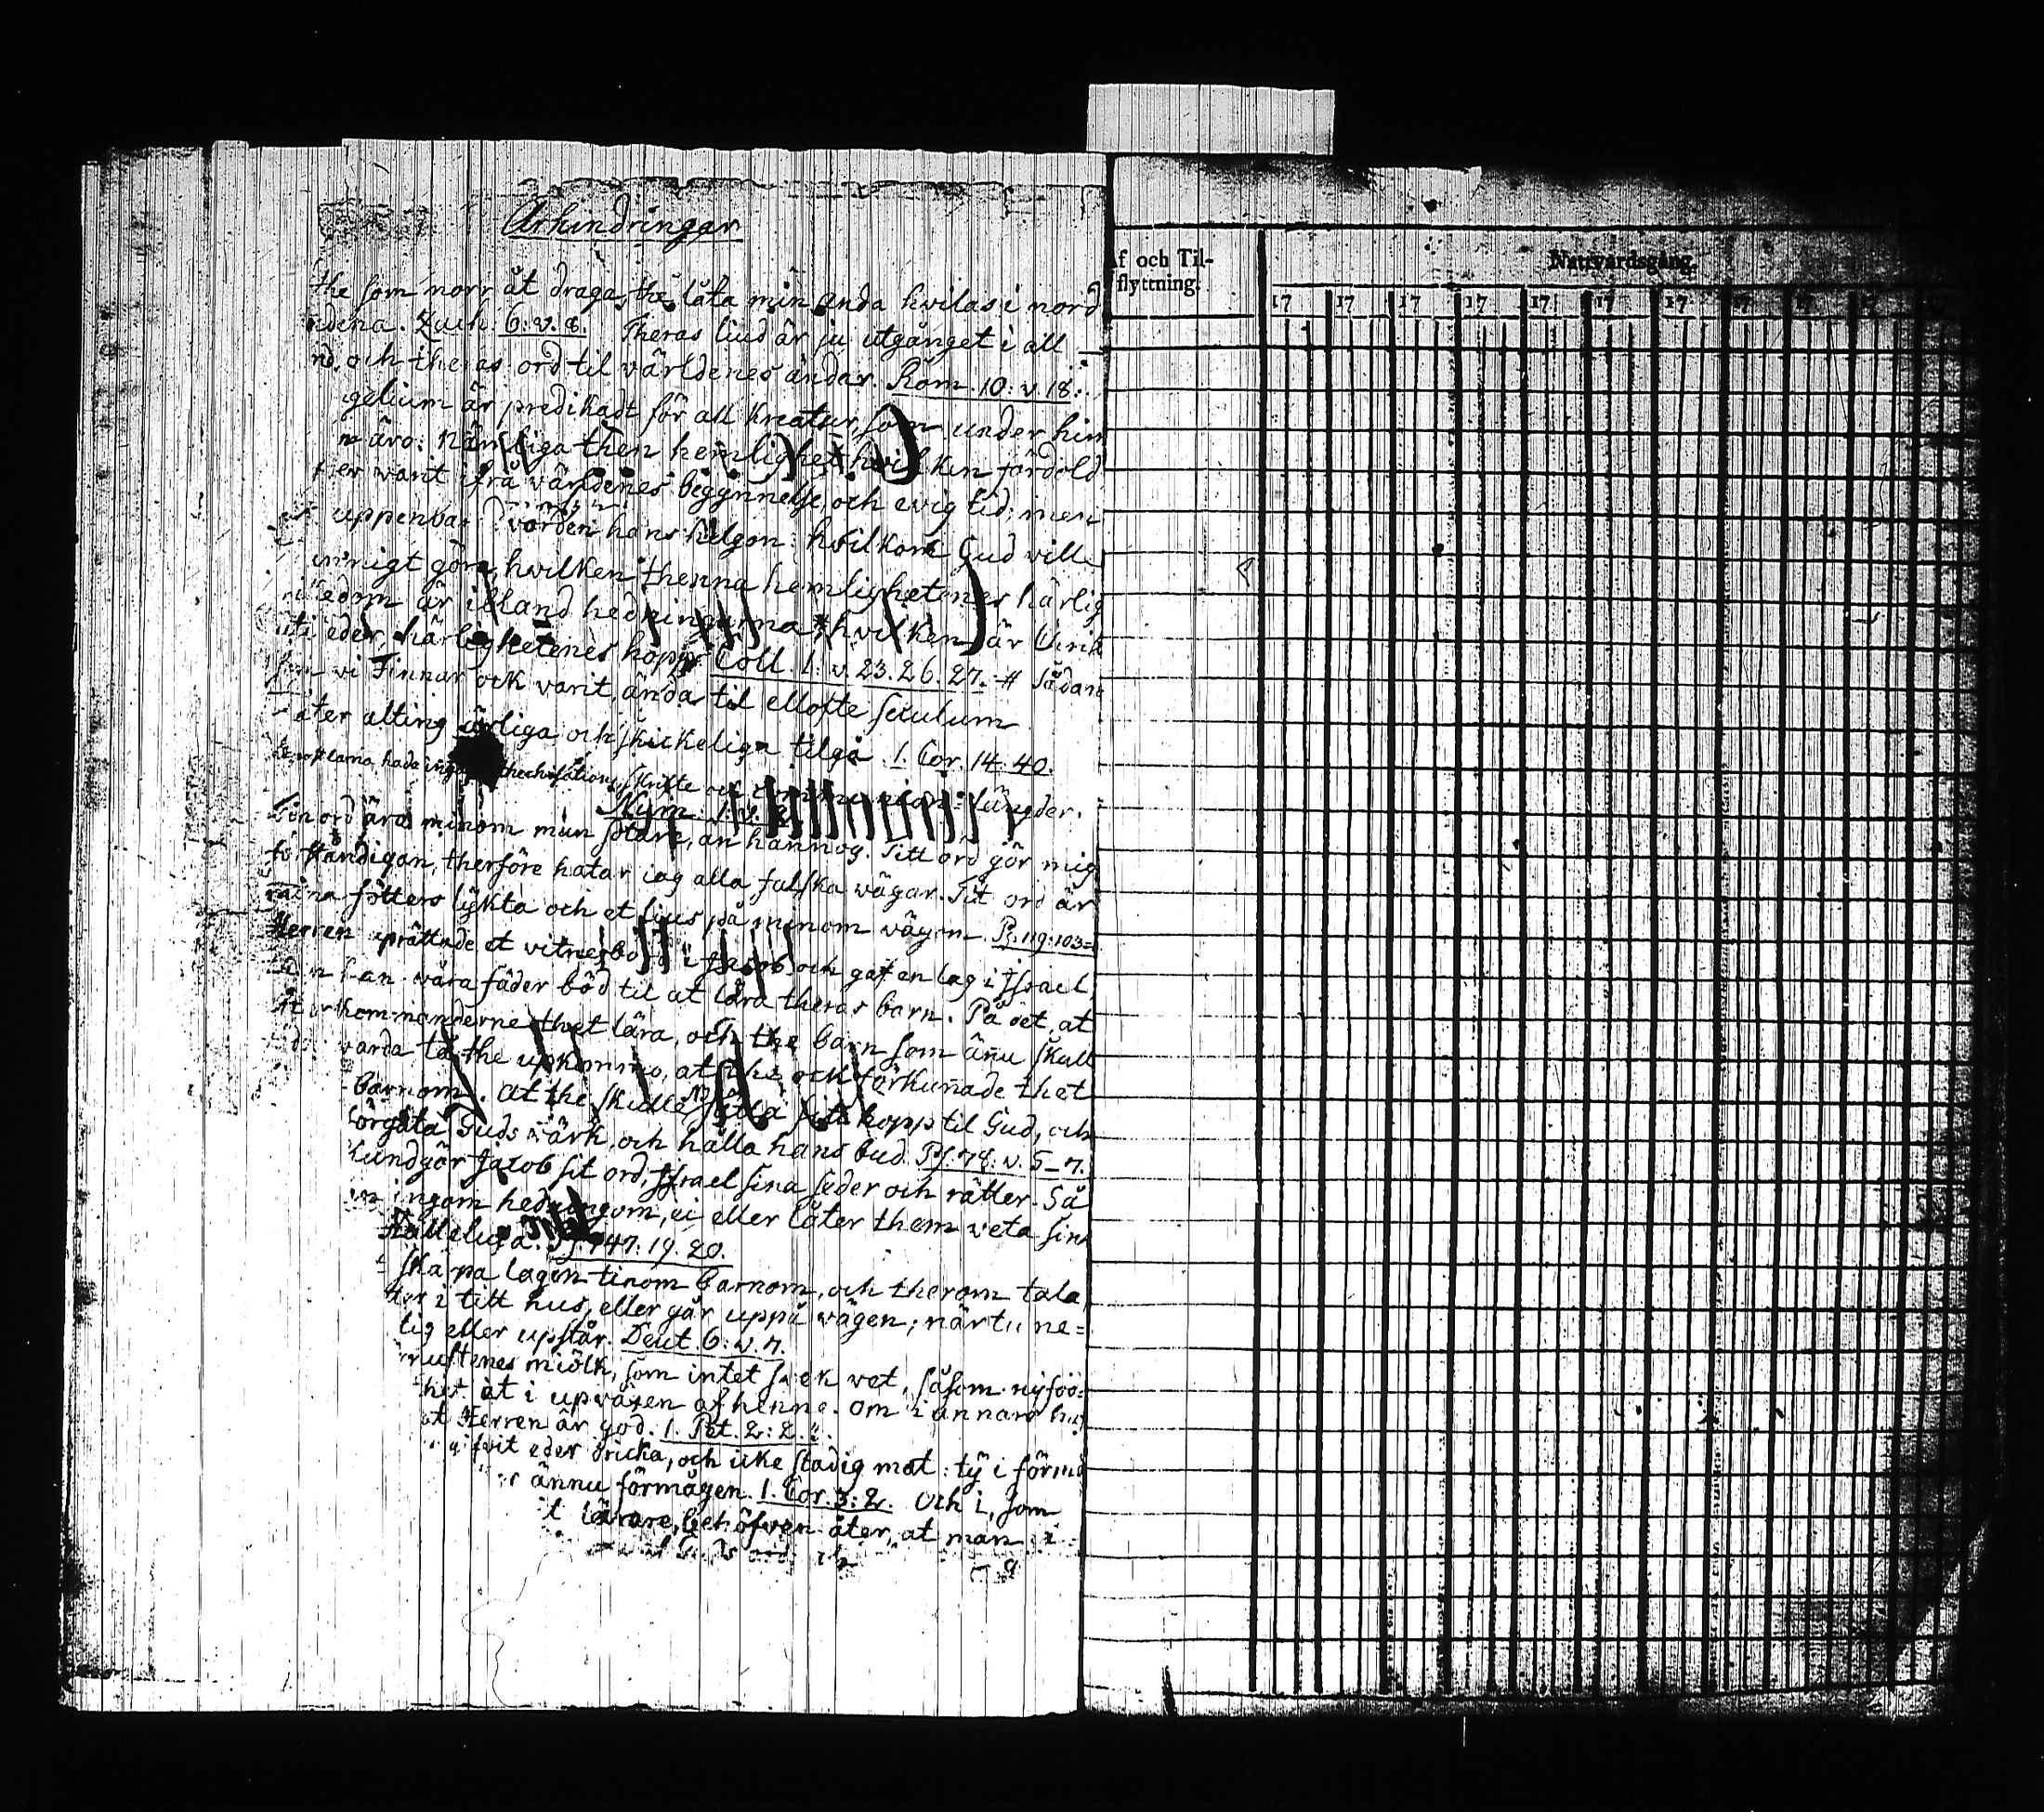 Arkundringar
the som norr åt draga, the låta min anda hvilas i nord
ndena. Zach. 6: v. 8. Theras liud är ju utgånget i all
nd, och theras ord til världenes ändar. Rom. 10: v. 18:
gelium är predikadt för all kreatur, som under him
n äro: Näm liga then hemlighet hvilken fördold
varit ifrå världenes begynnelse, och evig tid, men
uppenbar vorden hans helgon: hvilkom Gud ville
kunnigt göra, hvilken thenna hemlighetenes härlig
i edom är ibland hedningarna, hvilken är
uti eder, härlighetenes hopp. Coll. 1: v. 23. 26. 27. # Sådan
som vi Finnar ock varit, ända til ellofte seculum
åter alting ärliga och skickeliga tilgå 1. Cor. 14. 40.
hade längder.
Num. 1. v.
Tin ord äro minom mun sötare, än hannog. Titt ord gör mig
förståndigan, therföre hatar iag alla falska vägar. Tit ord är
mina fötters lykta och et lius på minom vägom. Ps. 119: 103
Herren uprättade et vitnesbord i Jacob, och gaf en lag i Israel,
den han våra fäder böd til at lära theras barn. På det, at
efterkommanderne thet lära, och the barn som änu skull
varda tå the upkommo, at the ock förkunnade thet
barnom. At the skulle sättia sitt hopp til Gud, och
förgäta Guds värk, och hålla hans bud. Ps. 78: v. 5-7.
Kundgör Jacob sit ord, Israel sina seder och rätter. Så
ingom hedningom, ei eller låter them veta sina
Halleluja. Ps. 147. 19. 20.
skärpa lagen tinom barnom, och therom tala,
i titt hus, eller går uppå vägen; när tu ne=
lig eller upstår. Deut. 6: v. 7.
nuftenes miölk, som intet svek vet, såsom nyföö=
at i upväxen af henne. Om i annars
at Herren är god. 1. Pet. 2: 2.
gifvit eder dricka, och icke stadig mat: ty i förmå
ännu förmågen. 1. Cor. 3: 2. Och i, som
lärare, behöfven åter, at man i
Af och Til-
flyttning.
Nattvardsgång.
17 17 17 17 17 17 17 17 17 17